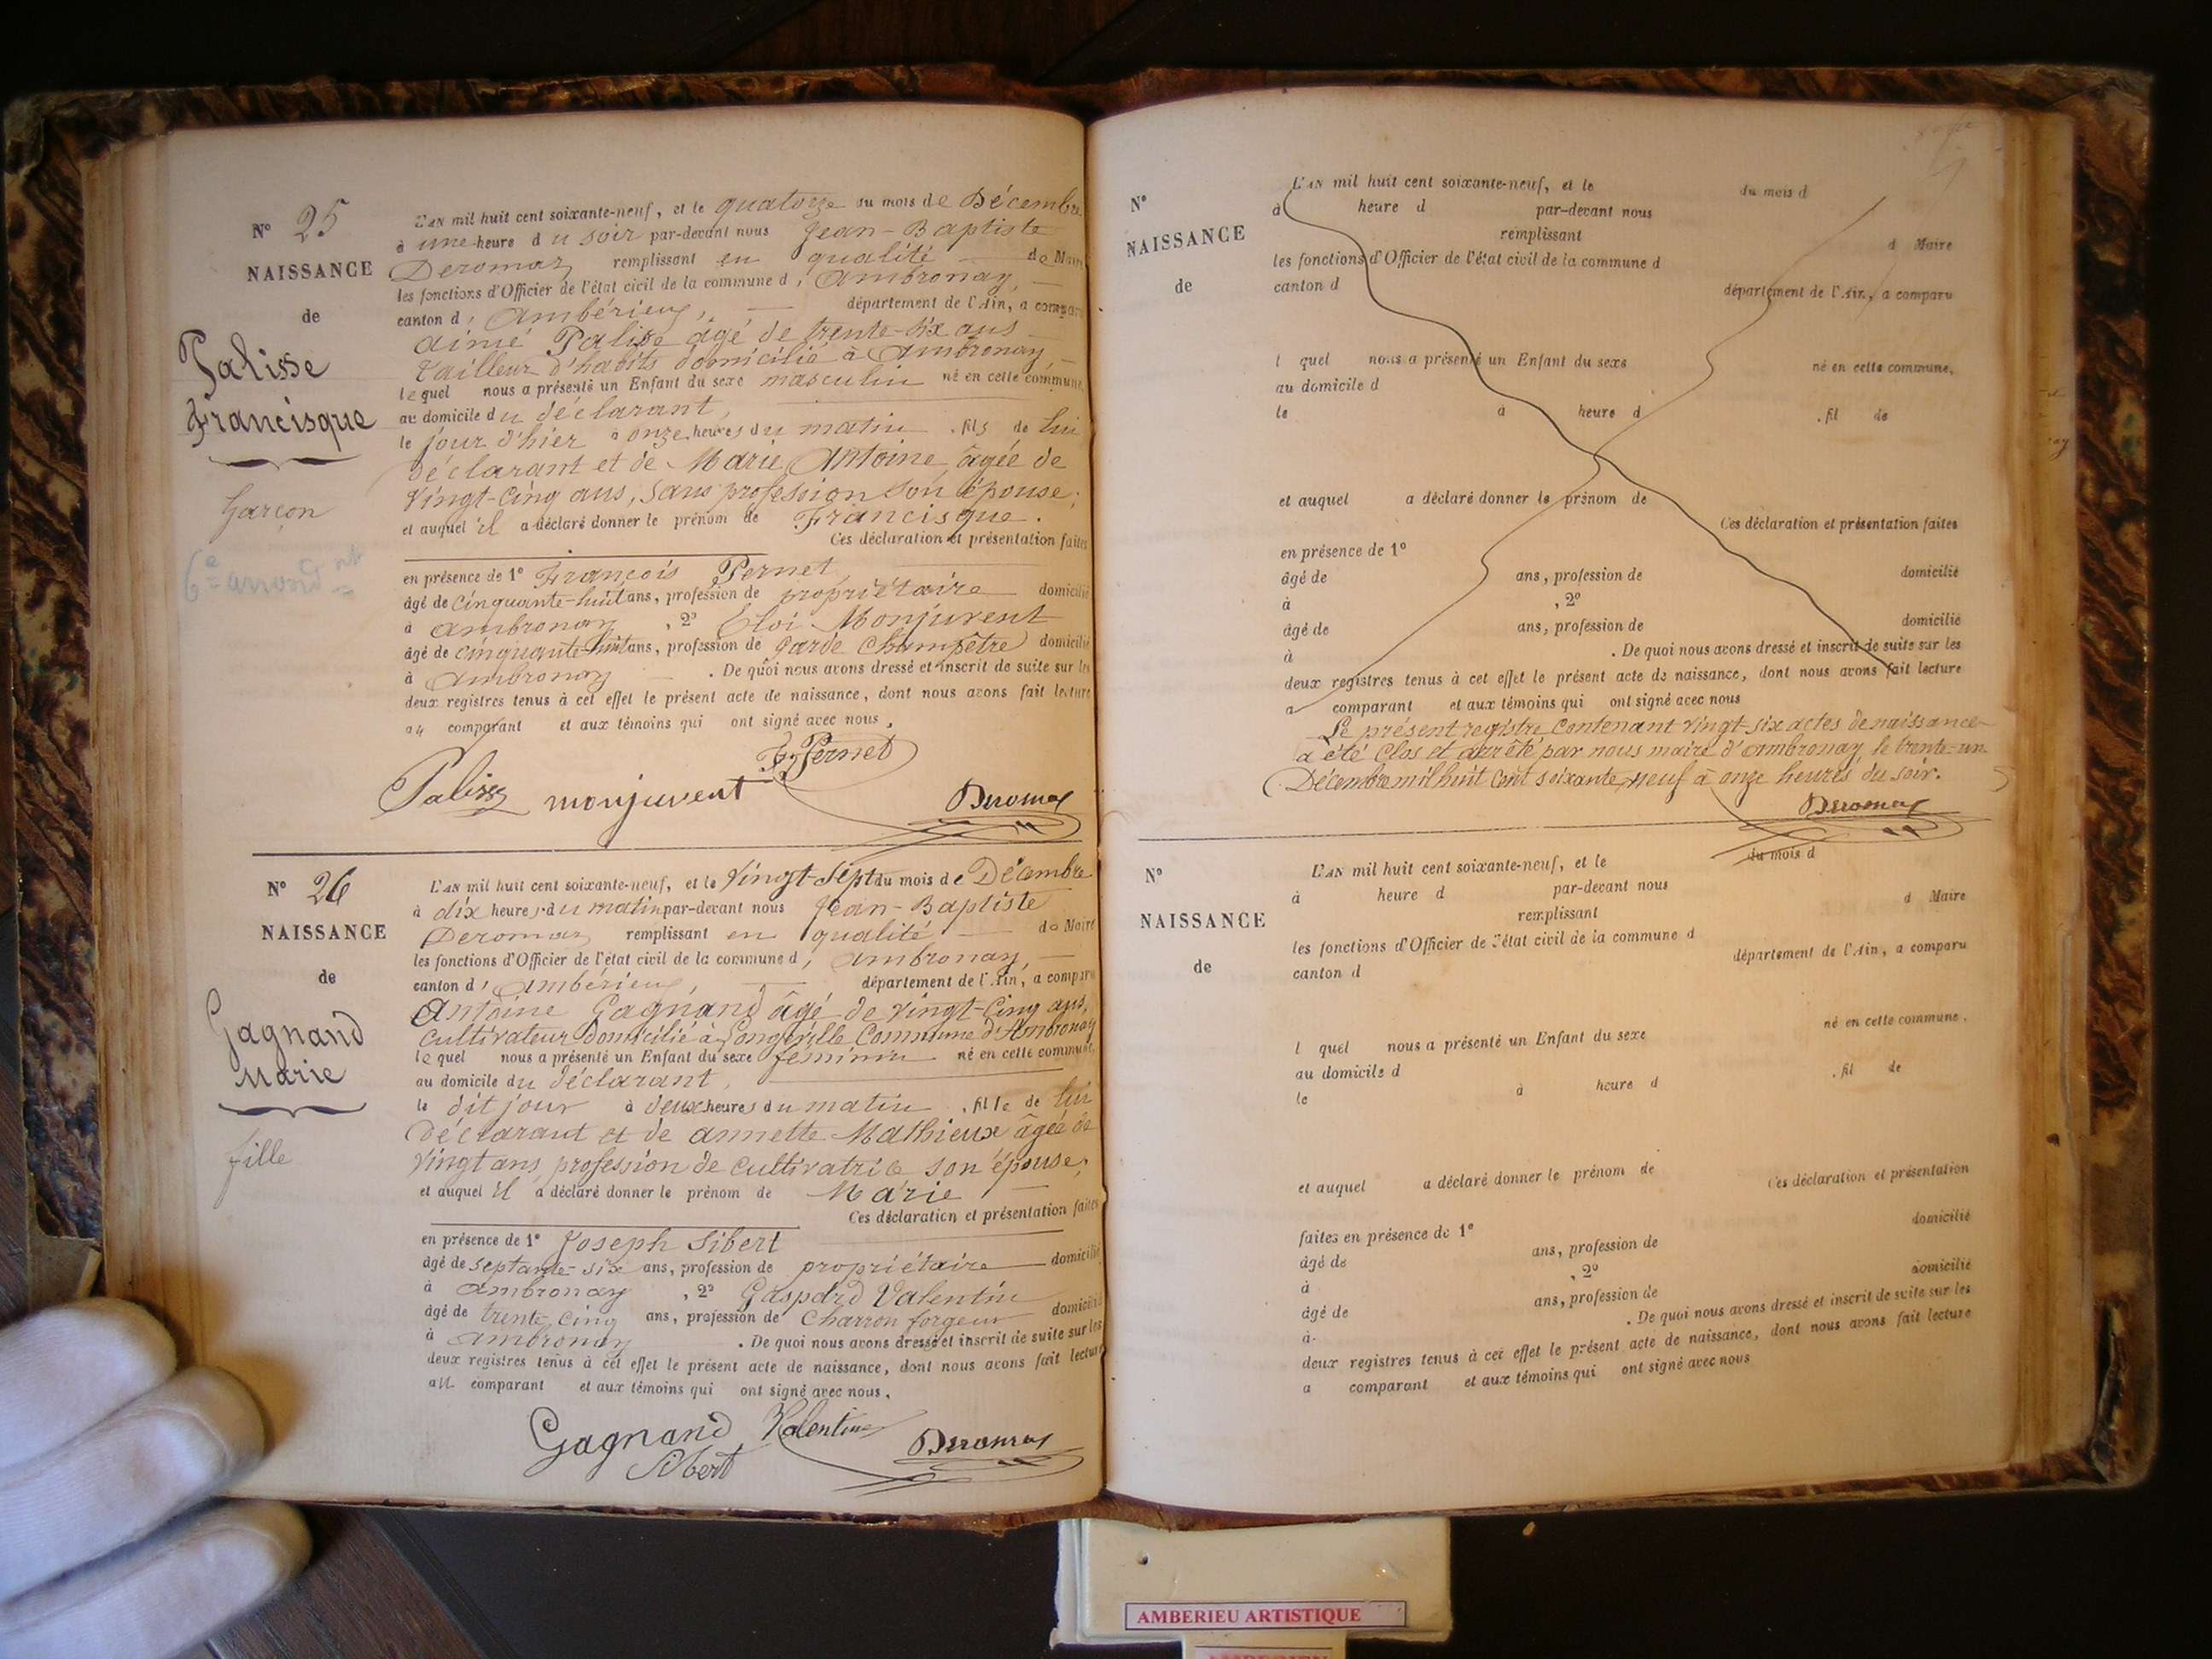 N° 25
NAISSANCE
de
Palisse
Francisque
Garçon
6e arrond nt
L'AN mil huit cent soixante-neuf, et le quatorze du mois de Décembre
à une heure du soir par-devant nous Jean-Baptiste
Deromas remplissant en qualité de Maire
les fonctions d'Officier de l'état civil de la commune d' Ambronay,
canton d' Ambérieu, département de l'Ain, a comparu
aimé Palisse âgé de trente-six ans
tailleur d'habits domicilié à Ambronay,
lequel nous a présenté un Enfant du sexe masculin né en cette commune,
au domicile du déclarant,
le jour d'hier à onze heures du matin . fils de lui
déclarant et de Marie Antoine, âgée de
vingt-cinq ans, sans profession son épouse;
et auquel il a déclaré donner le prénom de Francisque.
Ces déclaration et présentation faites
en présence de 1° François Pernet,
âgé de cinquante-huit ans, profession de propriétaire domicilié
à Ambronay , 2° Eloi Monjuvent
âgé de cinquante-huit ans, profession de garde Champêtre domicilié
à Ambronay . De quoi nous avons dressé et inscrit de suite sur les
deux registres tenus à cet effet le présent acte de naissance, dont nous avons fait lecture
au comparant et aux témoins qui ont signé avec nous,
Palisse monjuvent F. Pernet
Deromas
N° 26
NAISSANCE
de
Gagnand
Marie
fille
L'AN mil huit cent soixante-neuf, et le vingt-sept du mois de Décembre
à dix heures du matin par-devant nous Jean-Baptiste
Deromas remplissant en qualité de Maire
les fonctions d'Officier de l'état civil de la commune d' Ambronay,
canton d' Ambérieu, département de l'Ain, a comparu
Antoine Gagnand âgé de vingt-cinq ans,
cultivateur domicilié à Longeville Commune d'Ambronay
lequel nous a présenté un Enfant du sexe féminin né en cette commune,
au domicile du déclarant,
le dit jour à deux heures du matin . fille de lui
déclarant et de annette Mathieux âgée de
vingt ans profession de cultivatrice son épouse;
et auquel il a déclaré donner le prénom de Marie
Ces déclaration et présentation faites
en présence de 1° Joseph Sibert
âgé de septante-six ans, profession de propriétaire domicilié
à Ambronay , 2° Gaspard Valentin
âgé de trente cinq ans, profession de Charron forgeur domicilié
à Ambronay . De quoi nous avons dressé et inscrit de suite sur les
deux registres tenus à cet effet le présent acte de naissance, dont nous avons fait lecture
au comparant et aux témoins qui ont signé avec nous,
Gagnand Valentin
Sibert Deromas
N°
NAISSANCE
de
L'AN mil huit cent soixante-neuf, et le du mois d
à heure d par-devant nous
remplissant d Maire
les fonctions d'Officier de l'état civil de la commune d
canton d département de l'Ain, a comparu
l quel nous a présenté un Enfant du sexe né en cette commune,
au domicile d
le à heure d . fil de
et auquel a déclaré donner le prénom de
Ces déclaration et présentation faites
en présence de 1°
âgé de ans, profession de domicilié
à , 2°
âgé de ans, profession de domicilié
à . De quoi nous avons dressé et inscrit de suite sur les
deux registres tenus à cet effet le présent acte de naissance, dont nous avons fait lecture
a comparant et aux témoins qui ont signé avec nous
Le présent registre contenant vingt-six actes de naissance
a été clos et arrêté par nous maire d'Ambronay le trente-un
Décembre mil huit cent soixante neuf à onze heures du soir.
Deromas
N°
NAISSANCE
de
L'AN mil huit cent soixante-neuf, et le du mois d
à heure d par-devant nous
remplissant d Maire
les fonctions d'Officier de l'état civil de la commune d
canton d département de l'Ain, a comparu
l quel nous a présenté un Enfant du sexe né en cette commune,
au domicile d
le à heure d . fil de
et auquel a déclaré donner le prénom de
Ces déclaration et présentation
faites en présence de 1°
âgé de ans, profession de domicilié
à , 2°
âgé de ans, profession de domicilié
à . De quoi nous avons dressé et inscrit de suite sur les
deux registres tenus à cet effet le présent acte de naissance, dont nous avons fait lecture
a comparant et aux témoins qui ont signé avec nous
AMBERIEU ARTISTIQUE